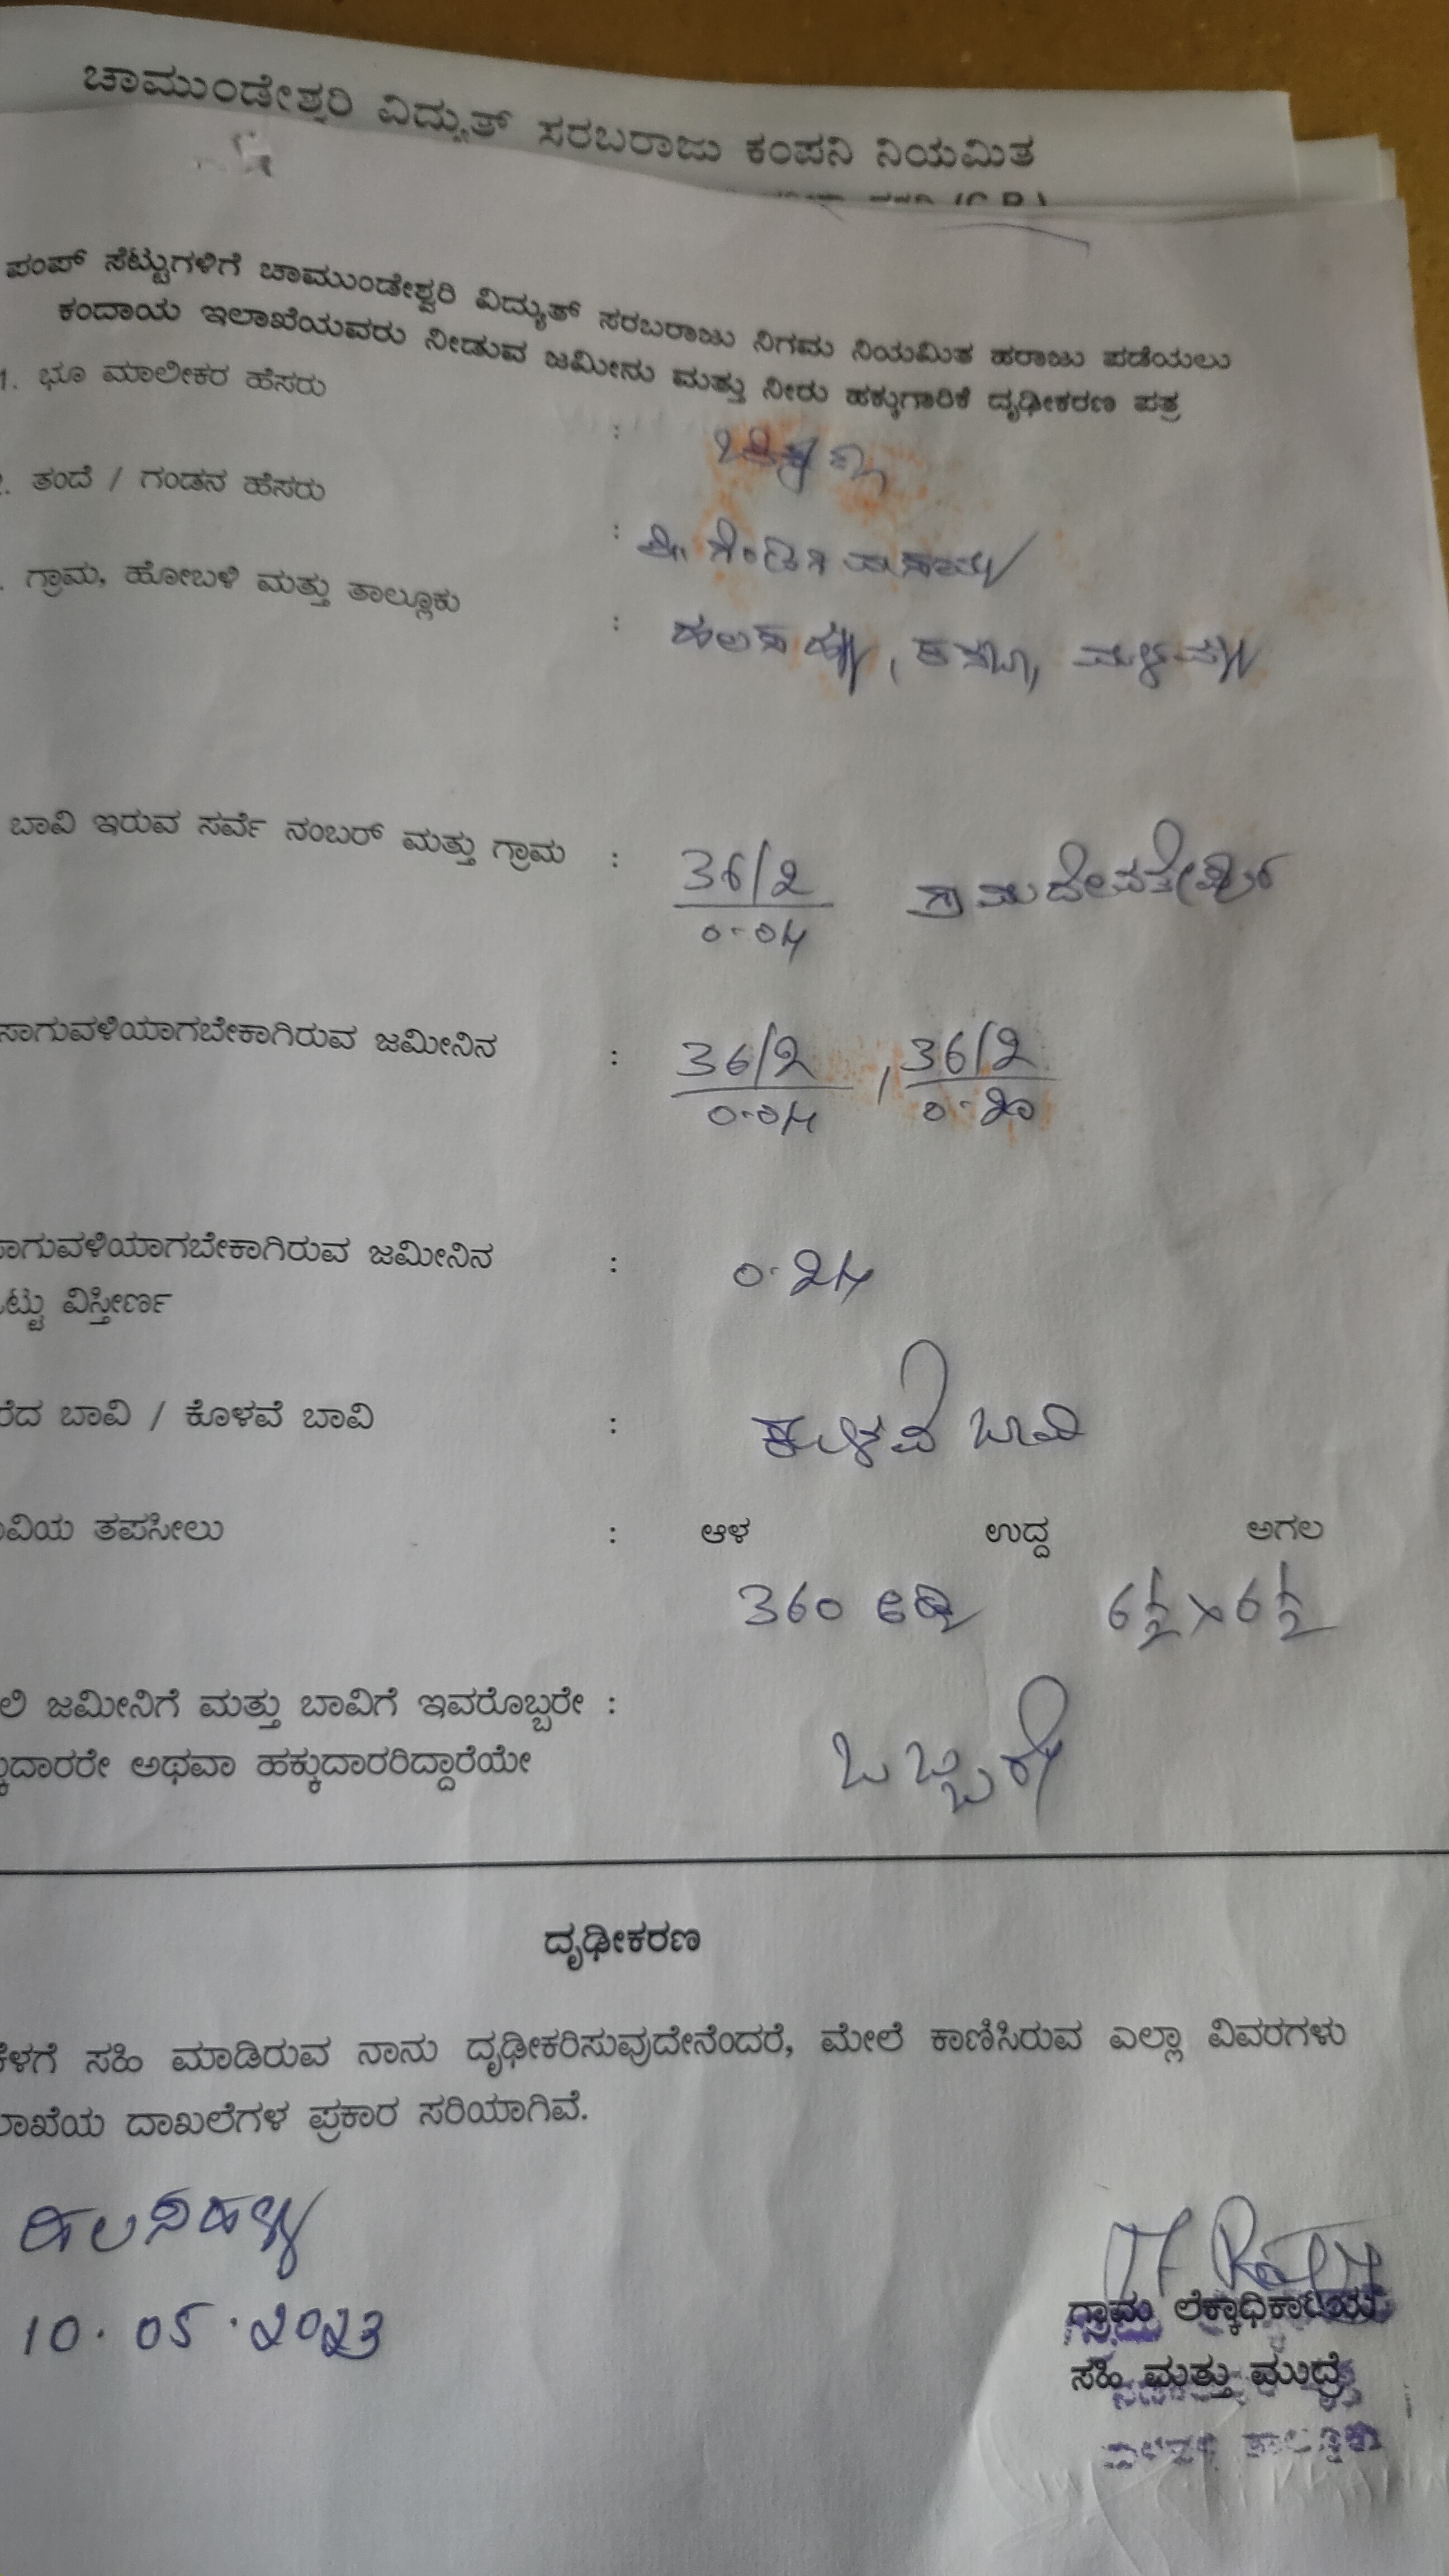 ಚಾಮುಂಡೇಶ್ವರಿ ವಿದ್ಯುತ್ ಸರಬರಾಜು ಕಂಪನಿ ನಿಯಮಿತ
ಪಂಪ್ ಸೆಟ್ಟುಗಳಿಗೆ ಚಾಮುಂಡೇಶ್ವರಿ ವಿದ್ಯುತ್ ಸರಬರಾಜು ನಿಗಮ ನಿಯಮಿತ ಹರಾಜು ಪಡೆಯಲು
ಕಂದಾಯ ಇಲಾಖೆಯವರು ನೀಡುವ ಜಮೀನು ಮತ್ತು ನೀರು ಹಕ್ಕುಗಾರಿಕೆ ದೃಢೀಕರಣ ಪತ್ರ
1. ಭೂ ಮಾಲೀಕರ ಹೆಸರು :
. ತಂದೆ / ಗಂಡನ ಹೆಸರು :
. ಗ್ರಾಮ, ಹೋಬಳಿ ಮತ್ತು ತಾಲ್ಲೂಕು : , ಕಸಬಾ, ಮಳವಳ್ಳಿ
ಬಾವಿ ಇರುವ ಸರ್ವೆ ನಂಬರ್ ಮತ್ತು ಗ್ರಾಮ : 36/2
0-04
ಸಾಗುವಳಿಯಾಗಬೇಕಾಗಿರುವ ಜಮೀನಿನ : 36/2 , 36/2
0-04 0-20
ಾಗುವಳಿಯಾಗಬೇಕಾಗಿರುವ ಜಮೀನಿನ : 0-24
ಟ್ಟು ವಿಸ್ತೀರ್ಣ
ರೆದ ಬಾವಿ / ಕೊಳವೆ ಬಾವಿ : ಕೊಳವೆ ಬಾವಿ
ವಿಯ ತಪಸೀಲು : ಆಳ ಉದ್ದ ಅಗಲ
360 ಅಡಿ 6½ x 6½
ಲಿ ಜಮೀನಿಗೆ ಮತ್ತು ಬಾವಿಗೆ ಇವರೊಬ್ಬರೇ : ಒಬ್ಬರೇ
ಕುದಾರರೇ ಅಥವಾ ಹಕ್ಕುದಾರರಿದ್ದಾರೆಯೇ
ದೃಢೀಕರಣ
ಕೆಳಗೆ ಸಹಿ ಮಾಡಿರುವ ನಾನು ದೃಢೀಕರಿಸುವುದೇನೆಂದರೆ, ಮೇಲೆ ಕಾಣಿಸಿರುವ ಎಲ್ಲಾ ವಿವರಗಳು
ಲಾಖೆಯ ದಾಖಲೆಗಳ ಪ್ರಕಾರ ಸರಿಯಾಗಿವೆ.
10.05.2023
ಗ್ರಾಮ ಲೆಕ್ಕಾಧಿಕಾರಿಯ
ಸಹಿ ಮತ್ತು ಮುದ್ರೆ